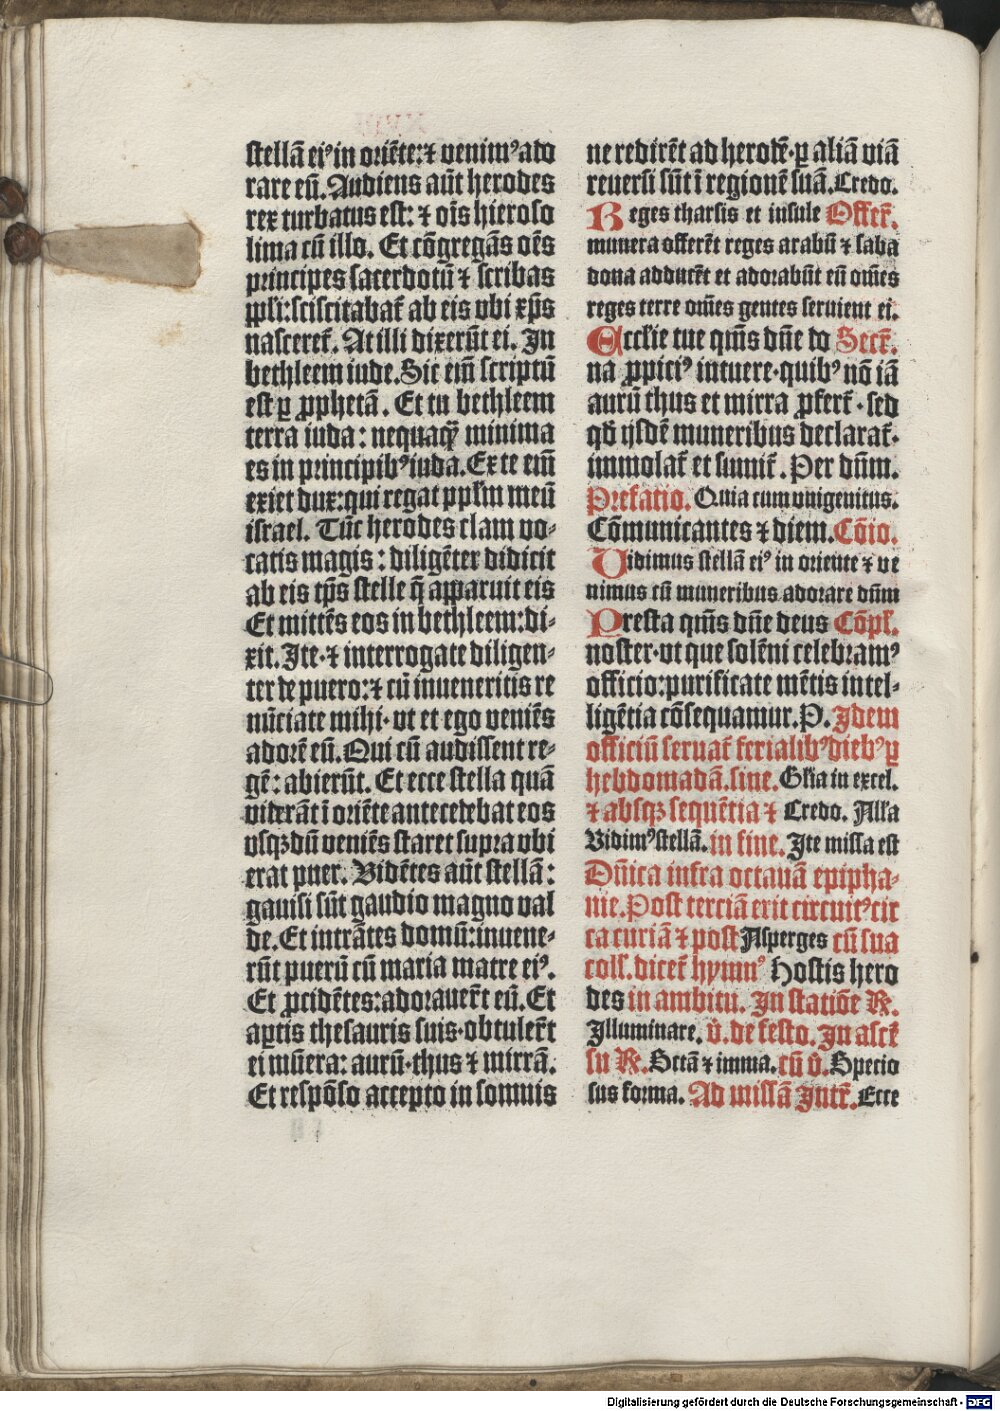 stellã eiꝰ in oriẽte: ⁊ venimꝰ ado
rare eũ. Audiens aũt herodes
rex turbatus est: ⁊ oĩs hieroso
lima cũ illo. Et cõgregãs oẽs
principes sacerdotũ ⁊ scribas
ppl̃i: sciscitabat̃ ab eis vbi xp̃s
nasceret̃. At illi dixerũt ei. In
bethleem iude. Sic em̃ scriptũ
est ꝑ ꝓphetã. Et tu bethleem
terra iuda: nequaq̃ minima
es in principibꝰ iuda. Ex te em̃
exiet dux: qui regat ppl̃m meũ
israel. Tũc herodes clam vo⸗
catis magis: diligẽter didicit
ab eis tp̃s stelle q̃ apparuit eis
Et mittẽs eos in bethleem: di⸗
xit. Ite ⁊ interrogate diligen⸗
ter de puero: ⁊ cũ inueneritis re
nũciate mihi· vt et ego veniẽs
adorẽ eũ. Qui cũ audissent re⸗
gẽ: abierũt. Et ecce stella quã
viderãt ĩ oriẽte antecedebat eos
vsqꝫ dũ veniẽs staret supra vbi
erat puer. Vidẽtes aũt stellã:
gauisi sũt gaudio magno val
de. Et intrãtes domũ: inuene⸗
rũt puerũ cũ maria matre eiꝰ.
Et ꝓcidẽtes: adorauer̃t eũ. Et
aꝑtis thesauris suis· obtuler̃t
ei mũera: aurũ· thus ⁊ mirrã.
Et respõso accepto in somnis
ne redirẽt ad herodẽ· ꝑ aliã viã
reuersi sũt ĩ regionẽ suã. Credo.
Reges tharsis et insule Offer̃.
munera offerẽt reges arabũ ⁊ saba
dona adducẽt et adorabũt eũ om̃es
reges terre om̃es gentes seruient ei.
Ecclie tue qm̃s dñe do Secr̃.
na ꝓpiciꝰ intuere· quibꝰ nõ iã
aurũ thus et mirra ꝓfert̃· sed
qđ ijsdẽ muneribus declarat̃·
immolat̃ et sumit̃. Per dñm.
Prefatio. Quia cum vnigenitus.
Cõmunicantes ⁊ diem. Cõio.
Vidimus stellã eiꝰ in oriente ⁊ ve
nimus cũ muneribus adorare dñm
Presta qm̃s dñe deus Cõpl̃.
noster· vt que solẽni celebramꝰ
officio: purificate mẽtis intel⸗
ligẽtia cõsequamur. P. Idem
officiũ seruat̃ ferialibꝰ diebꝰ ꝑ
hebdomadã. sine. Gl̃ia in excel.
⁊ absqꝫ sequẽtia ⁊ Credo. All̃a
Vidimꝰ stellã. in fine. Ite missa est
Dñica infra octauã epipha⸗
nie. Post terciã erit circuitꝰ cir
ca curiã ⁊ post Asperges cũ sua
coll̃. dicet̃ hymnꝰ Hostis hero
des in ambitu. In statiõe R.
Illuminare. v̾. de festo. In ascẽ
su R. Sctã ⁊ imma. cũ v̾. Specio
sus forma. Ad missã Intr̃. Ecce
Digitalisierung gefördert durch die Deutsche Forschungsgemeinschaft - DFG